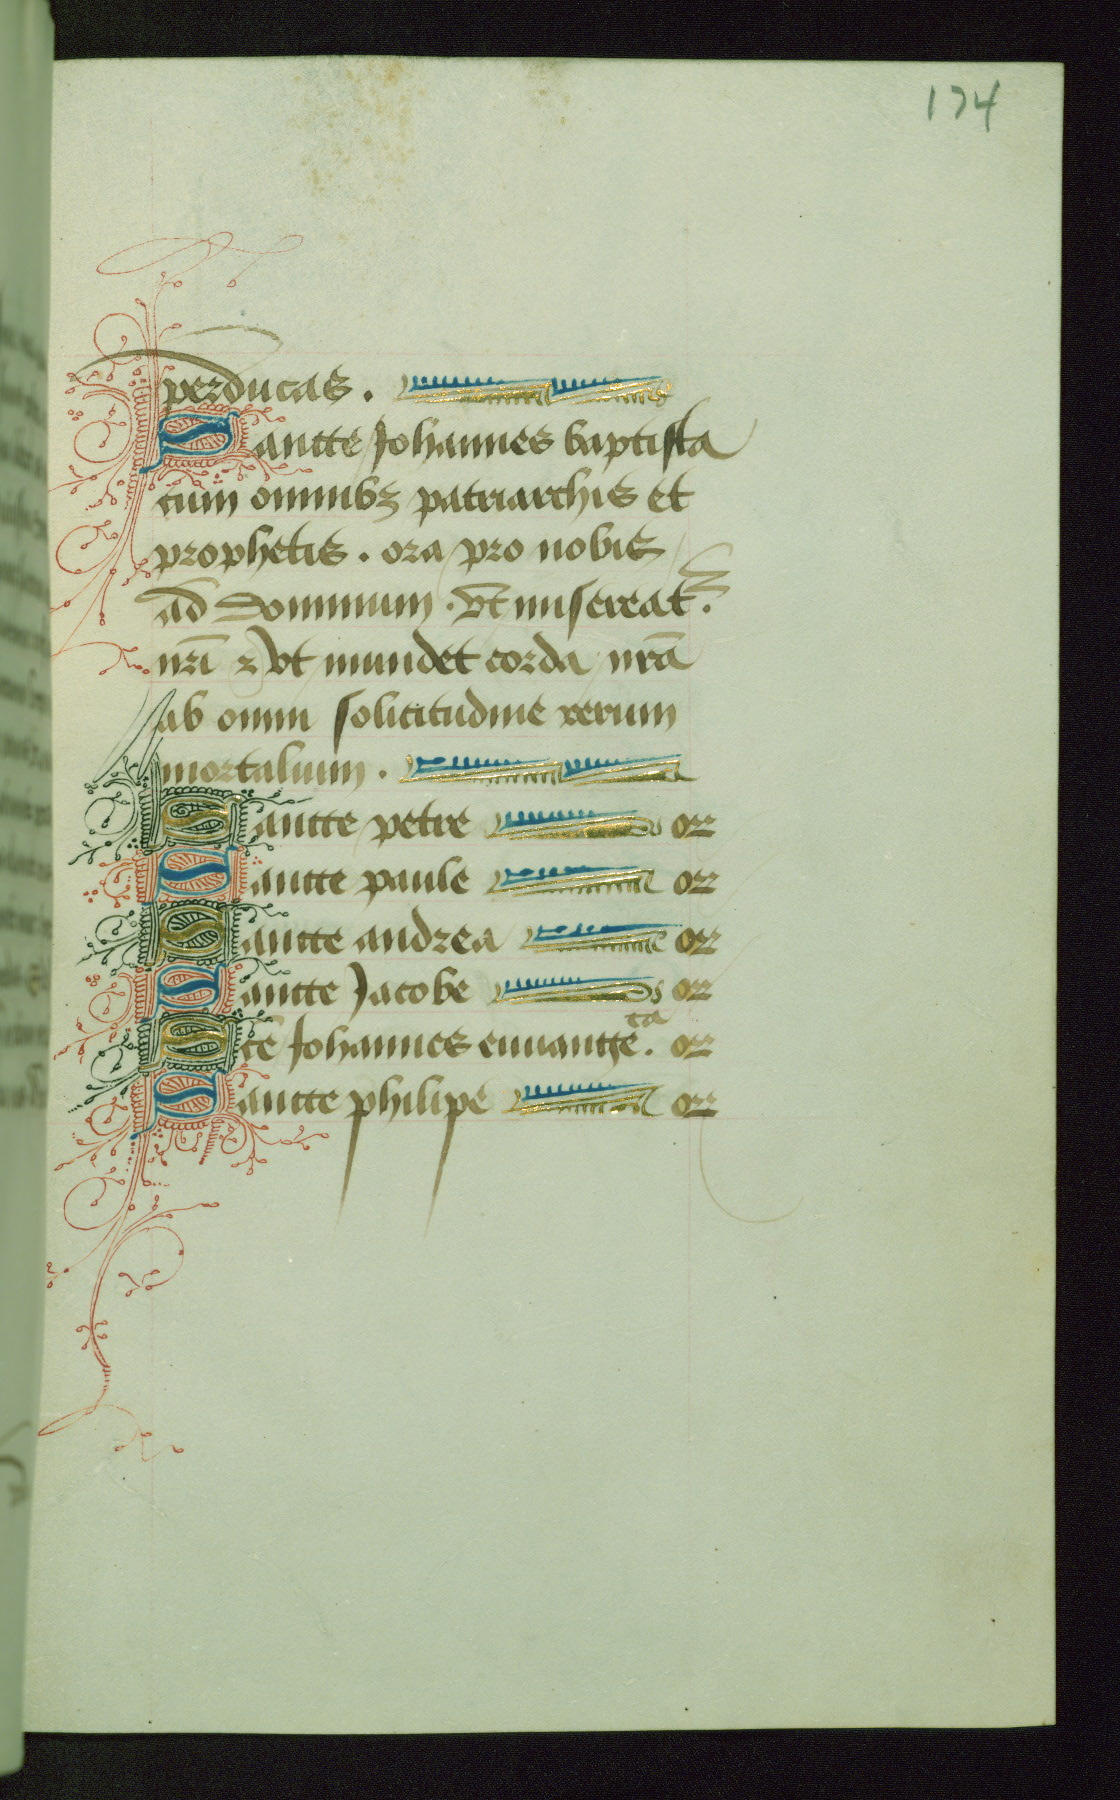 174
perducas.
Sancte Johannes baptista
cum omnibꝫ patriarchis et
prophetis. ora pro nobis
ad Dominum. vt misereat᷑.
nr̄i ⁊ vt mundet corda nr̄a
ab omni solicitudine rerum
mortalium.
Sancte petre or
Sancte paule or
Sancte andrea or
Sancte Jacobe or
Sc̄e Johannes euuanḡe. or
Sancte philipe or